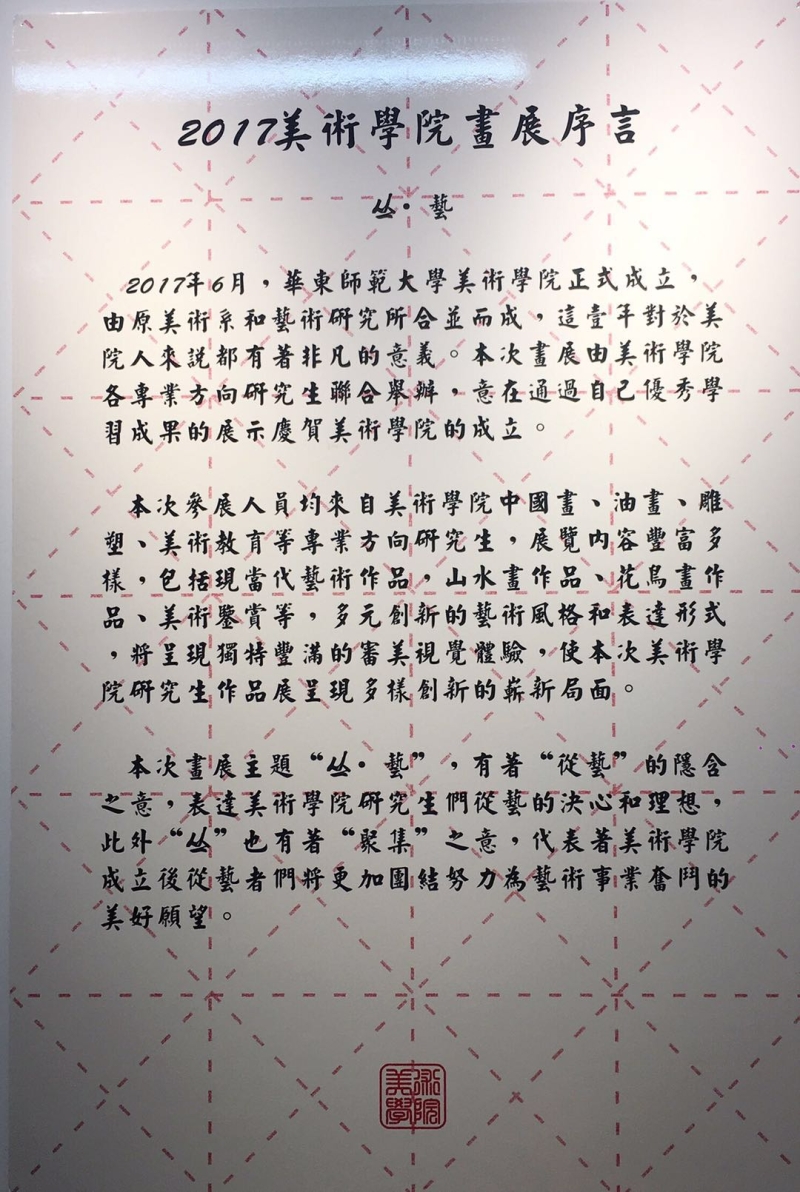 2017美術學院畫展序言
丛·藝
2017年6月，華東師範大學美術學院正式成立，
由原美術系和藝術研究所合並而成，這壹年對於美
院人來説都有著非凡的意義。本次畫展由美術學院
各專業方向研究生聯合舉辦，意在通過自己優秀學
習成果的展示慶賀美術學院的成立。
本次參展人員均來自美術學院中國畫、油畫、雕
塑、美術教育等專業方向研究生，展覽内容豐富多
樣，包括現當代藝術作品，山水畫作品、花鳥畫作
品、美術鑒賞等，多元創新的藝術風格和表達形式
，將呈現獨特豐滿的審美視覺體驗，使本次美術學
院研究生作品展呈現多樣創新的嶄新局面。
本次畫展主題“丛·藝”，有著“從藝”的隱含
之意，表達美術學院研究生們從藝的決心和理想，
此外“丛”也有著“聚集”之意，代表著美術學院
成立後從藝者們將更加團結努力為藝術事業奮鬥的
美好願望。
美術
學院